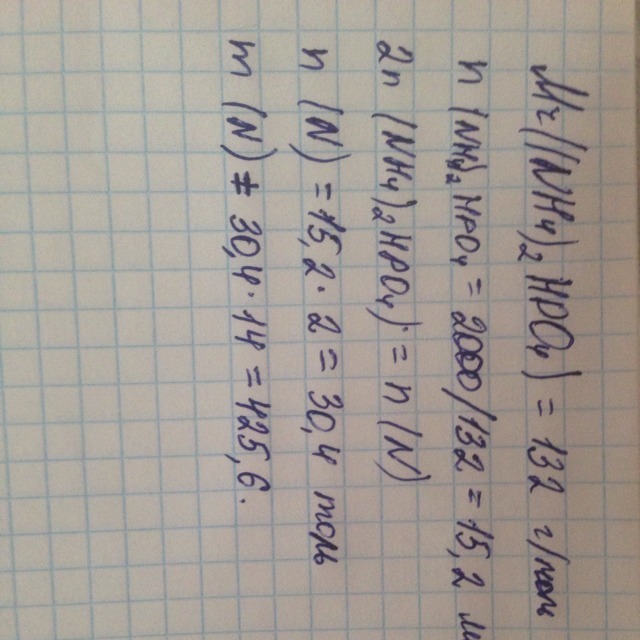 Mr((NH4)2HPO4) = 132 г/моль
n (NH4)2 HPO4 = 2000/132 = 15,2
2n (NH4)2HPO4) = n (N)
n (N) = 15,2 · 2 = 30,4 моль
m (N) = 30,4 · 14 = 425,6.